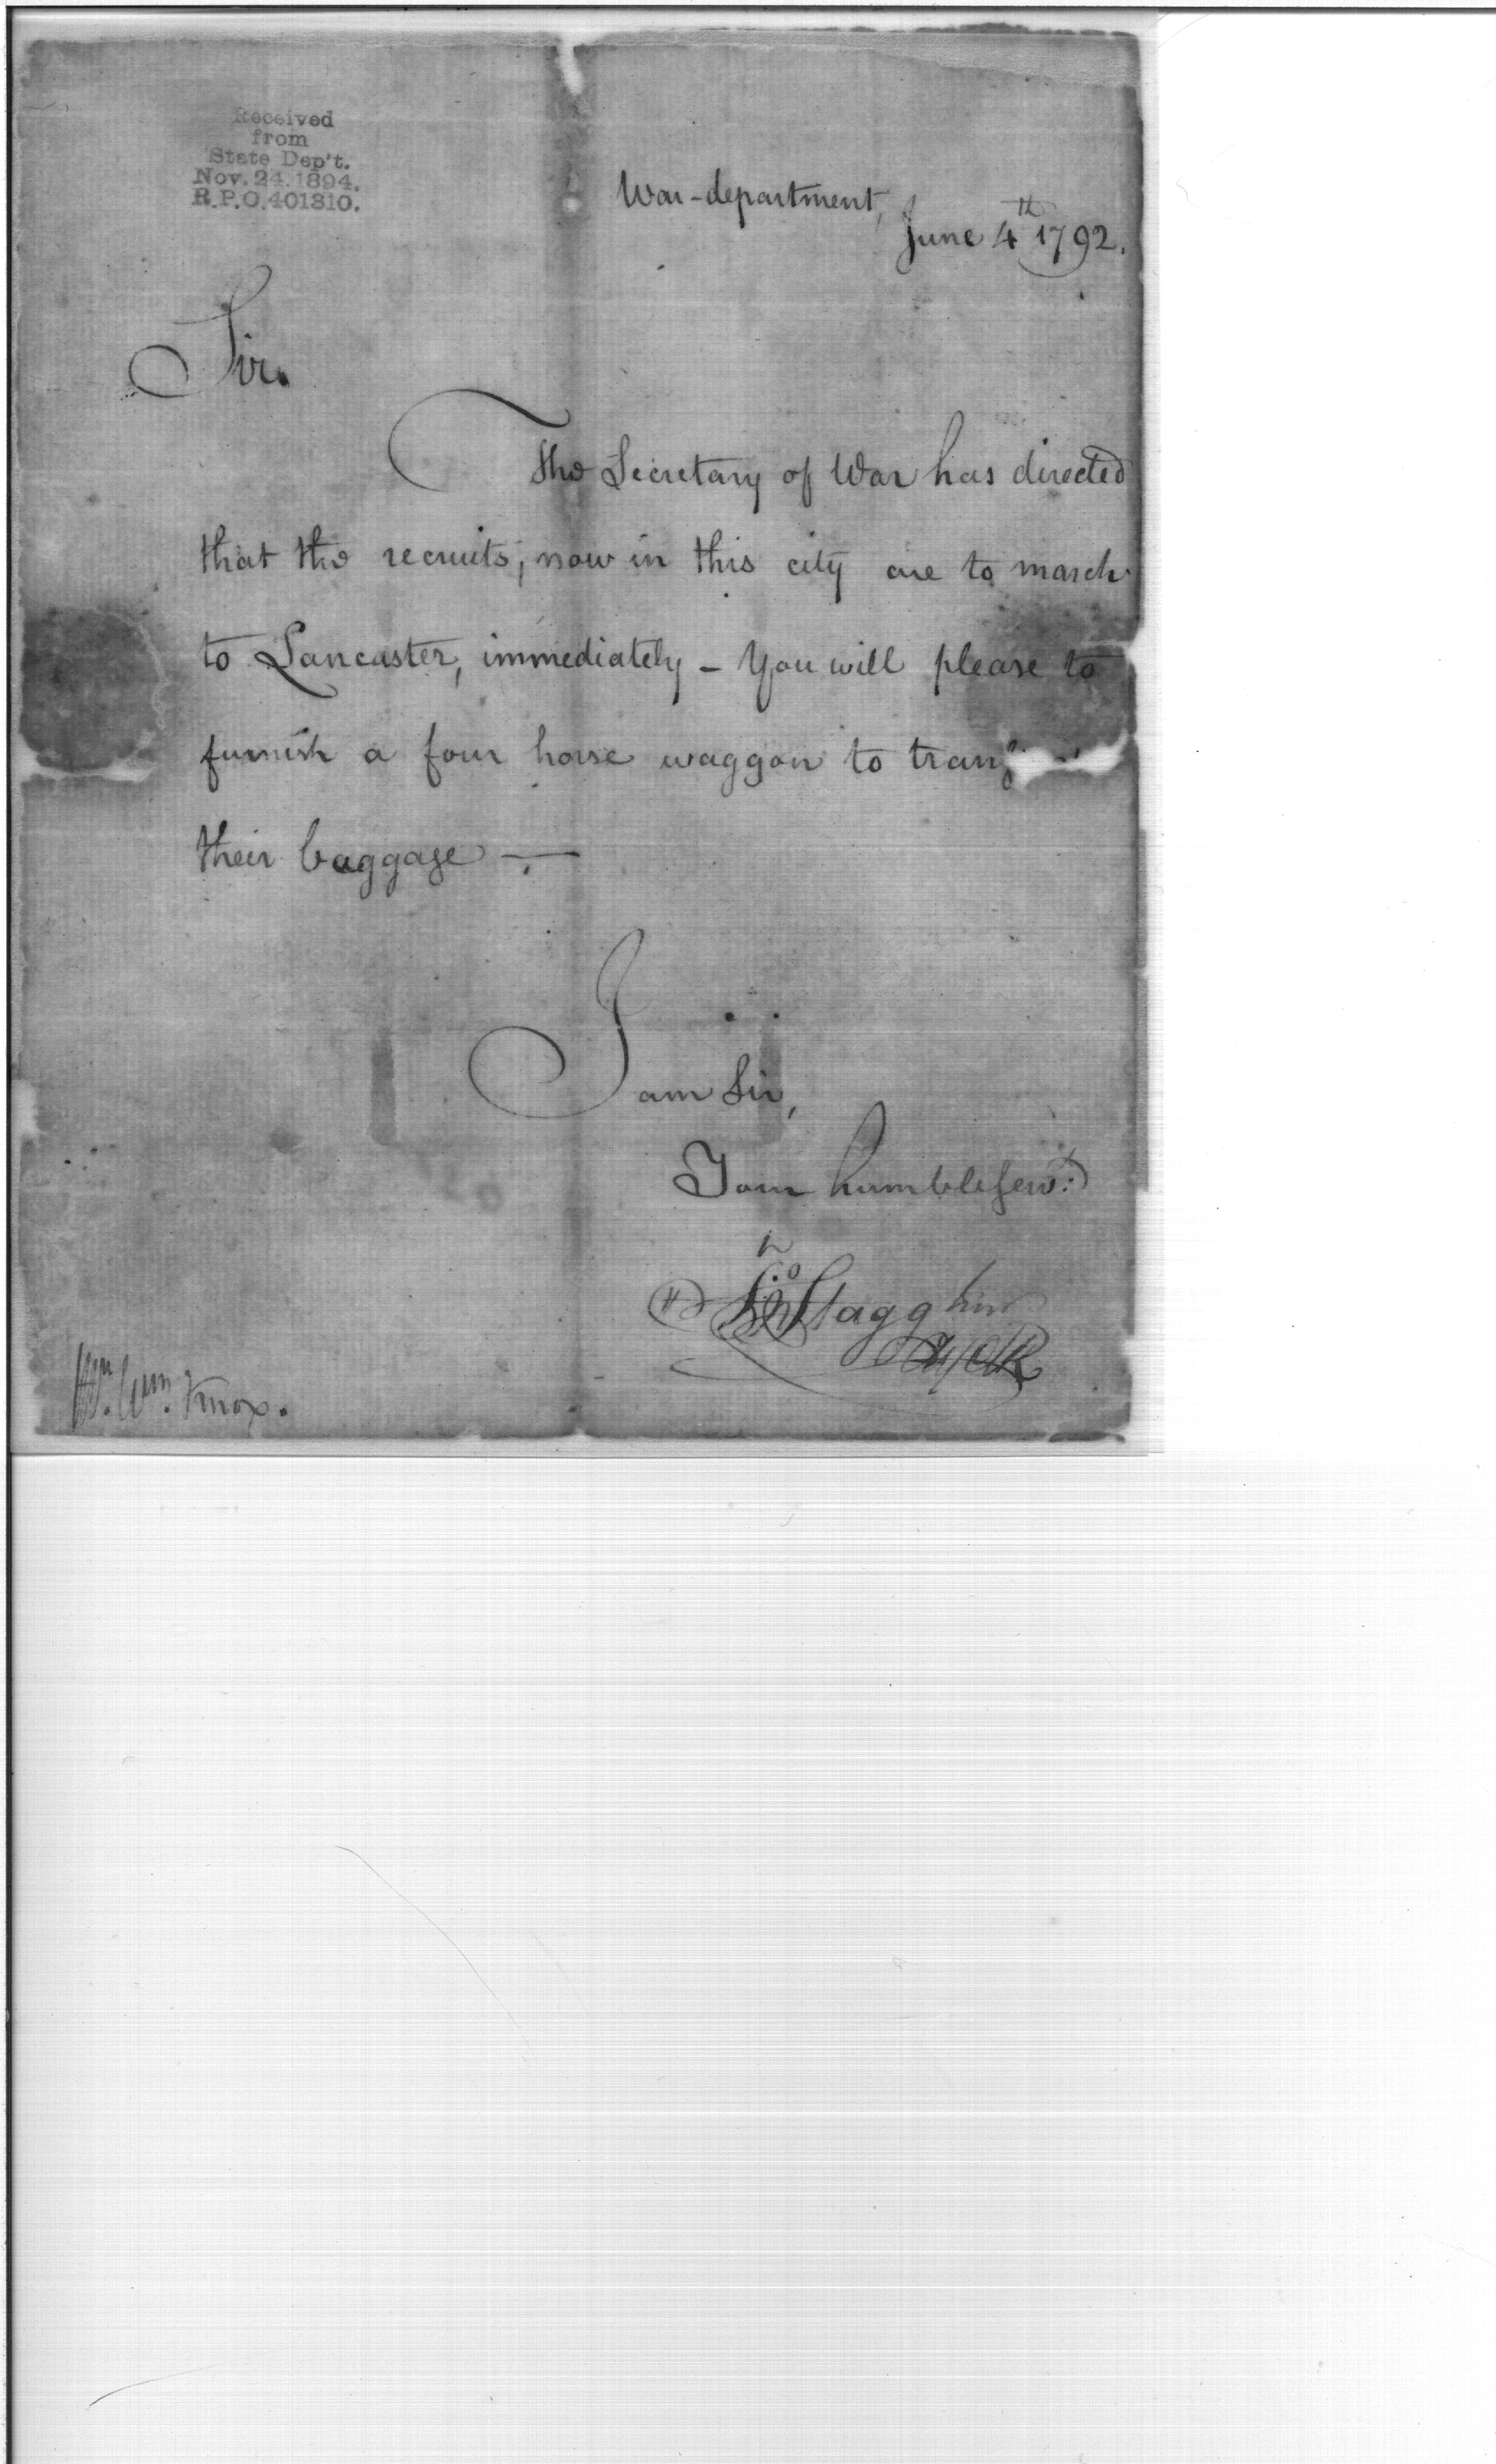 Received
from
State Dep't.
Nov. 24. 1894.
R.P.O. 401310.
War-department,
June 4th 1792.
Sir.
The Secretary of War has directed
that the recruits, now in this city are to march
to Lancaster, immediately - You will please to
furnish a four horse waggon to
their baggage —
I am Sir,
Your humble serv:t
Jno Stagg Junr
Mr. Wm. Knox.